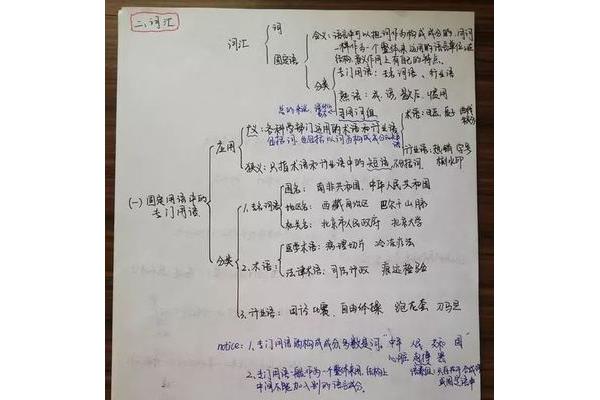 二、词汇
词汇
词
固定语
含义：语言中可以把词作为构成成分的、同词
一样作为一个整体来运用的语言单位，在
结构、意义作用上有自己的特点。
分类
专门用语：专名词语、行业语
熟语：成语、歇后、惯用
习用词组
(一) 固定用语中的
专门用语
应用
广义：各科学部门运用的术语和行业语
包括词，也包括以词为构成成分的
术语：
行业语：热销
狭义：只指术语和行业语中的短语，不包括词
分类
1. 专名词语
国名：南非共和国、中华人民共和国
地区名：西藏自治区 巴尔干山脉
机关名：北京市人民政府 北京大学
2. 术语：
医学术语：病理切片 冷冻疗法
法律术语：司法行政 痕迹检验
3. 行业语：团访比赛 自由体操 跑龙套 刀马旦
notice: 1. 专门用语的构成成分多数是词，"中华 人民 共和 国"
2. 专门用语一般作为一个整体来用，结构上
中间不能加入别的语言成分。